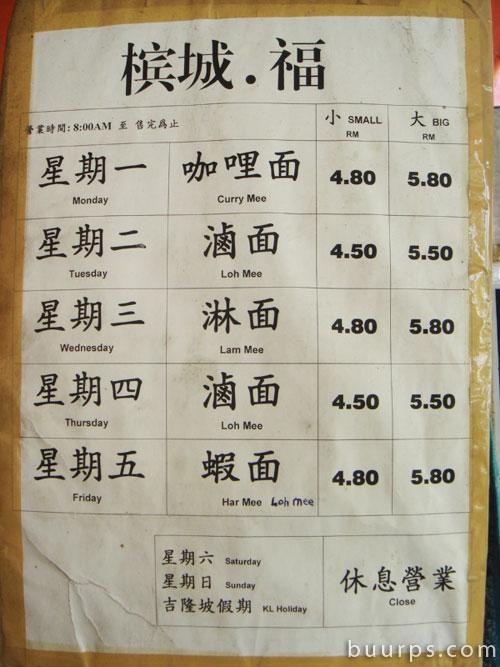 槟城.福
營業時間: 8:00AM 至 售完爲止
小 SMALL
RM
大 BIG
RM
星期一
Monday
咖哩面
Curry Mee
4.80
5.80
星期二
Tuesday
滷面
Loh Mee
4.50
5.50
星期三
Wednesday
淋面
Lam Mee
4.80
5.80
星期四
Thursday
滷面
Loh Mee
4.50
5.50
星期五
Friday
蝦面
Har Mee Loh Mee
4.80
5.80
星期六 Saturday
星期日 Sunday
吉隆坡假期 KL Holiday
休息營業
Close
buurps.com